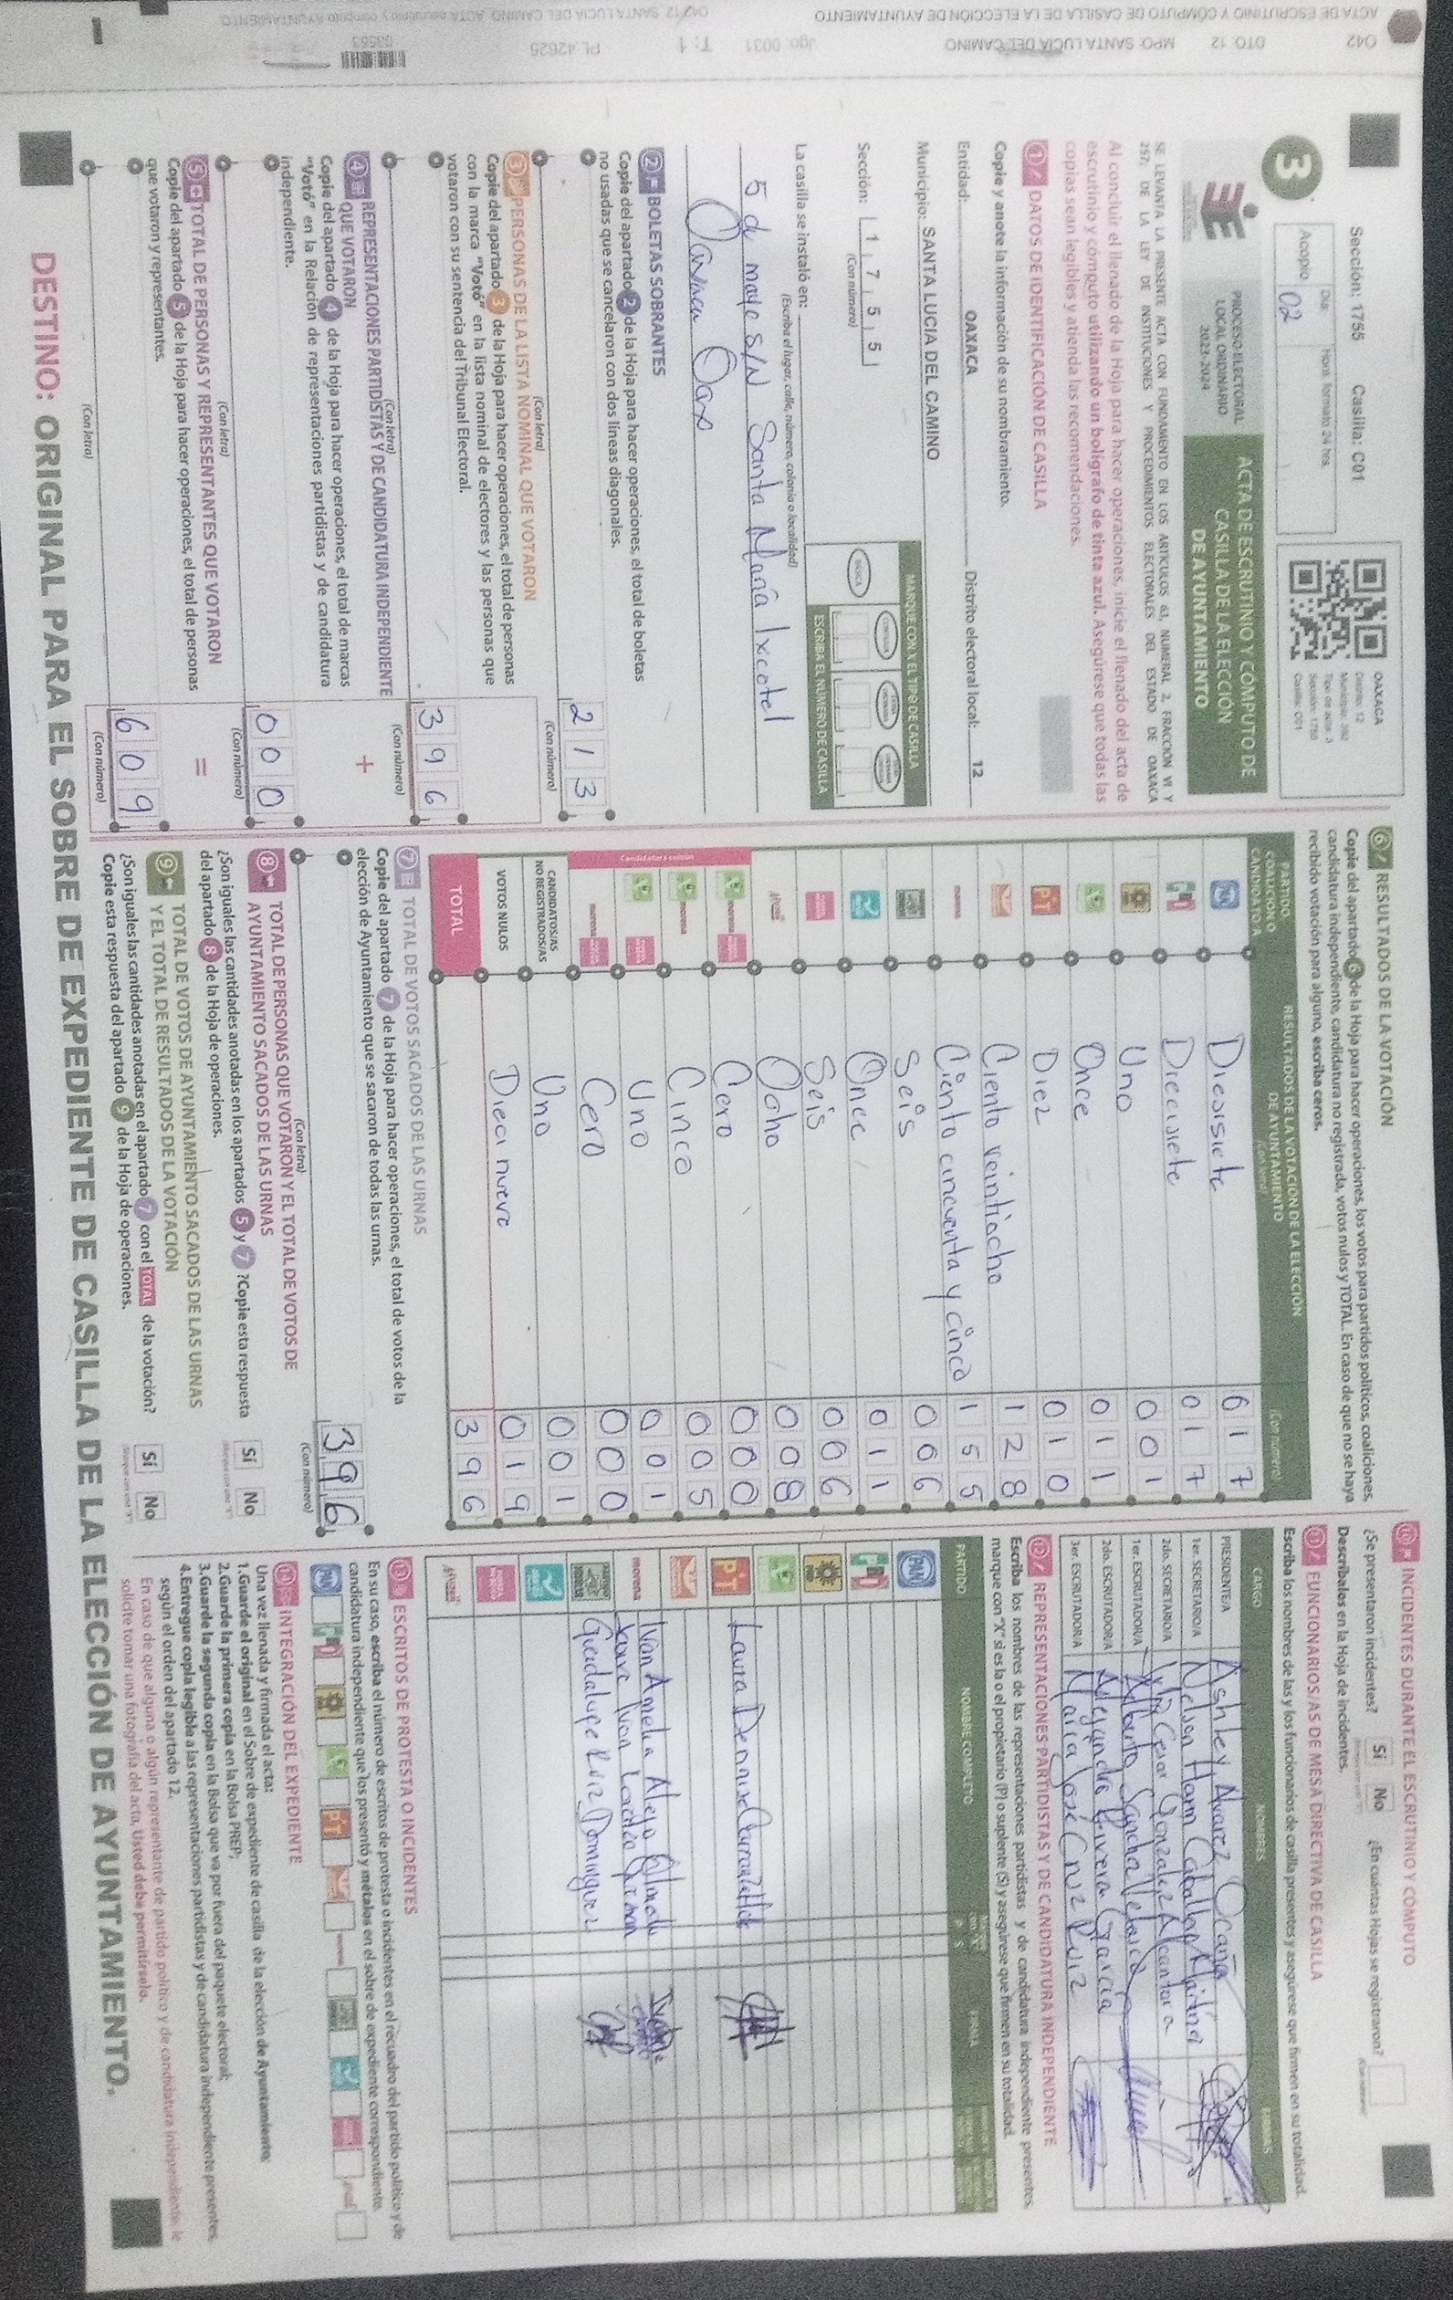 Sección: 1755 Casilla: C01
Día: Hora: formato 24 hrs.
Acopio: 02
3
OAXACA
Distrito: 12
Tipo de acta: 3
Sección: 1755
Casilla: C01
PROCESO ELECTORAL
LOCAL ORDINARIO
2023-2024
ACTA DE ESCRUTINIO Y CÓMPUTO DE
CASILLA DE LA ELECCIÓN
DE AYUNTAMIENTO
SE LEVANTA LA PRESENTE ACTA CON FUNDAMENTO EN LOS ARTÍCULOS 63, NUMERAL 2, FRACCIÓN VI Y
257, DE LA LEY DE INSTITUCIONES Y PROCEDIMIENTOS ELECTORALES DEL ESTADO DE OAXACA
Al concluir el llenado de la Hoja para hacer operaciones, inicie el llenado del acta de
escrutinio y cómputo utilizando un bolígrafo de tinta azul. Asegúrese que todas las
copias sean legibles y atienda las recomendaciones.
1 DATOS DE IDENTIFICACIÓN DE CASILLA
Copie y anote la información de su nombramiento.
Entidad: OAXACA Distrito electoral local: 12
Municipio: SANTA LUCIA DEL CAMINO
Sección: 1 7 5 5
(Con número)
MARQUE CON X EL TIPO DE CASILLA
BÁSICA
ESCRIBA EL NÚMERO DE CASILLA
La casilla se instaló en:
(Escriba el lugar, calle, número, colonia o localidad)
5 de mayo S/N Santa María Ixcotel
Oaxaca Oax
2 BOLETAS SOBRANTES
Copie del apartado 2 de la Hoja para hacer operaciones, el total de boletas
no usadas que se cancelaron con dos líneas diagonales.
213
(Con letra) (Con número)
3 PERSONAS DE LA LISTA NOMINAL QUE VOTARON
Copie del apartado 3 de la Hoja para hacer operaciones, el total de personas
con la marca "Votó" en la lista nominal de electores y las personas que
votaron con su sentencia del Tribunal Electoral.
396
(Con letra) (Con número)
4 REPRESENTACIONES PARTIDISTAS Y DE CANDIDATURA INDEPENDIENTE
QUE VOTARON
+
Copie del apartado 4 de la Hoja para hacer operaciones, el total de marcas
"Votó" en la Relación de representaciones partidistas y de candidatura
independiente.
000
(Con letra) (Con número)
5 TOTAL DE PERSONAS Y REPRESENTANTES QUE VOTARON
=
Copie del apartado 5 de la Hoja para hacer operaciones, el total de personas
que votaron y representantes.
609
(Con letra) (Con número)
6 RESULTADOS DE LA VOTACIÓN
Copie del apartado 6 de la Hoja para hacer operaciones, los votos para partidos políticos, coaliciones,
candidatura independiente, candidatura no registrada, votos nulos y TOTAL. En caso de que no se haya
recibido votación para alguno, escriba ceros.
PARTIDO,
COALICIÓN O
CANDIDATO/A
RESULTADOS DE LA VOTACIÓN DE LA ELECCIÓN
DE AYUNTAMIENTO
(Con letra) (Con número)
PAN Diesisiete 017
Diecisiete 017
Uno 001
Once 011
PT Diez 010
Ciento veintiocho 128
morena Ciento cincuenta y cinco 155
Seis 006
Once 011
Seis 006
Ocho 008
morena Cero 000
morena Cinco 005
Uno 001
morena Cero 000
CANDIDATOS/AS
NO REGISTRADOS/AS Uno 001
VOTOS NULOS Dieci nueve 019
TOTAL 396
7 TOTAL DE VOTOS SACADOS DE LAS URNAS
Copie del apartado 7 de la Hoja para hacer operaciones, el total de votos de la
elección de Ayuntamiento que se sacaron de todas las urnas.
396
(Con letra) (Con número)
8 TOTAL DE PERSONAS QUE VOTARON Y EL TOTAL DE VOTOS DE
AYUNTAMIENTO SACADOS DE LAS URNAS
¿Son iguales las cantidades anotadas en los apartados 5 y 7 ?Copie esta respuesta
del apartado 8 de la Hoja de operaciones.
Sí No
9 TOTAL DE VOTOS DE AYUNTAMIENTO SACADOS DE LAS URNAS
Y EL TOTAL DE RESULTADOS DE LA VOTACIÓN
¿Son iguales las cantidades anotadas en el apartado 7 con el TOTAL de la votación?
Copie esta respuesta del apartado 9 de la Hoja de operaciones.
Sí No
10 INCIDENTES DURANTE EL ESCRUTINIO Y CÓMPUTO
¿Se presentaron incidentes? Sí No ¿En cuántas Hojas se registraron?
Descríbalos en la Hoja de incidentes.
11 FUNCIONARIOS/AS DE MESA DIRECTIVA DE CASILLA
Escriba los nombres de las y los funcionarios de casilla presentes y asegúrese que firmen en su totalidad.
CARGO NOMBRES FIRMAS
PRESIDENTE/A Ashley Alvarez Ocaña
1er. SECRETARIO/A Nelson Caballero
2do. SECRETARIO/A Cesar Gonzalez Alcantara
1er. ESCRUTADOR/A Alberto Sanchez Velasco
2do. ESCRUTADOR/A Alejandra García
3er. ESCRUTADOR/A María José Cruz Ruiz
12 REPRESENTACIONES PARTIDISTAS Y DE CANDIDATURA INDEPENDIENTE
Escriba los nombres de las representaciones partidistas y de candidatura independiente presentes,
marque con "X" si es la o el propietario (P) o suplente (S) y asegúrese que firmen en su totalidad.
PARTIDO NOMBRE COMPLETO P S FIRMA
PAN
PT Laura Dennise
morena Ivan Amelia Alejo
Guadalupe Ruiz Dominguez
13 ESCRITOS DE PROTESTA O INCIDENTES
En su caso, escriba el número de escritos de protesta o incidentes en el recuadro del partido político y de
candidatura independiente que los presentó y métalos en el sobre de expediente correspondiente.
14 INTEGRACIÓN DEL EXPEDIENTE
Una vez llenada y firmada el acta:
1.Guarde el original en el Sobre de expediente de casilla de la elección de Ayuntamiento;
2.Guarde la primera copia en la Bolsa PREP;
3.Guarde la segunda copia en la Bolsa que va por fuera del paquete electoral;
4.Entregue copia legible a las representaciones partidistas y de candidatura independiente presentes,
según el orden del apartado 12.
En caso de que alguna o algún representante de partido político y de candidatura independiente, le
solicite tomar una fotografía del acta, Usted debe permitírselo.
DESTINO: ORIGINAL PARA EL SOBRE DE EXPEDIENTE DE CASILLA DE LA ELECCIÓN DE AYUNTAMIENTO.
042 DTO. 12 MPO. SANTA LUCIA DEL CAMINO
ACTA DE ESCRUTINIO Y CÓMPUTO DE CASILLA DE LA ELECCIÓN DE AYUNTAMIENTO